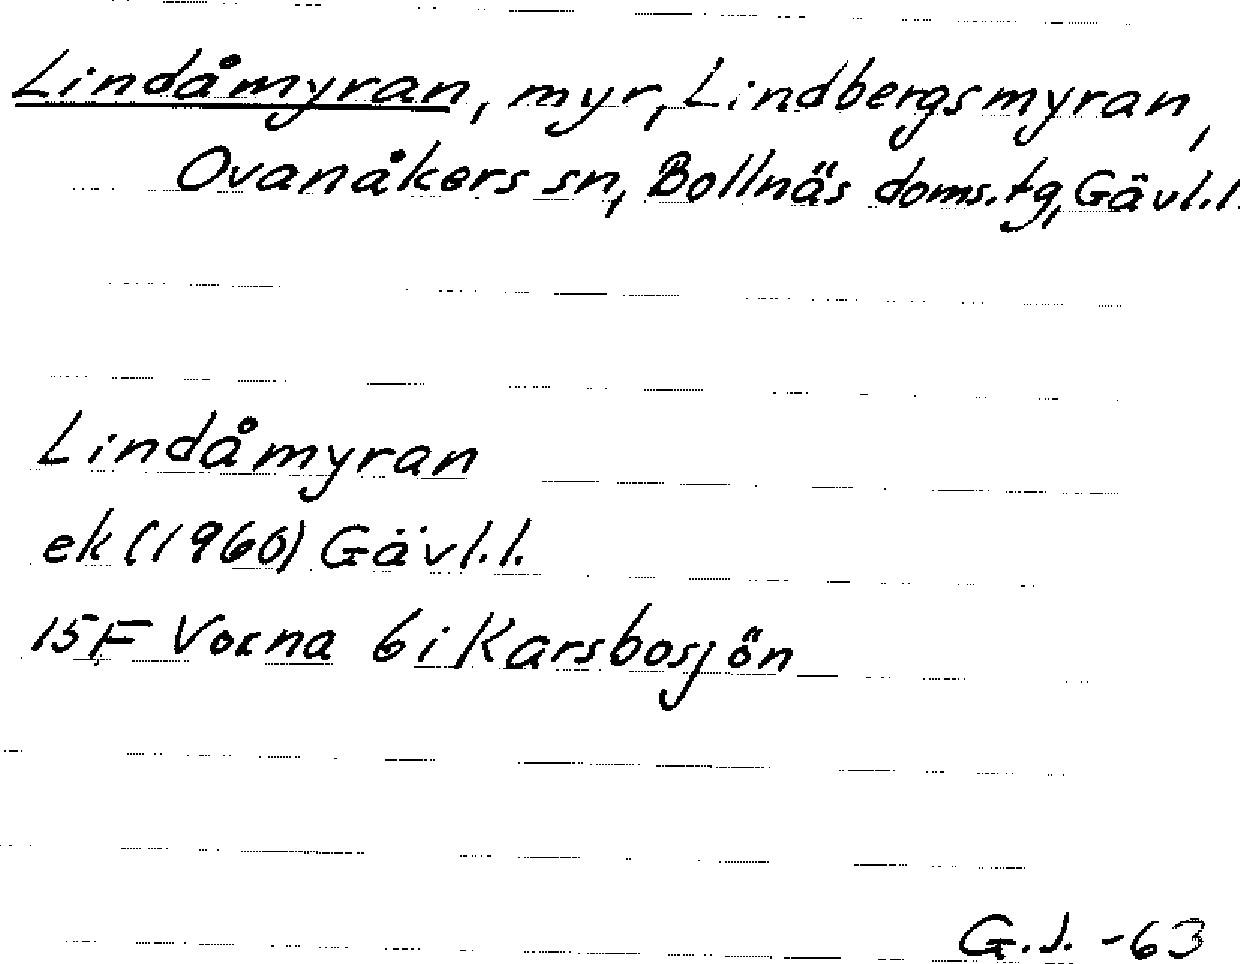 Lindåmyran, myr, Lindbergsmyran,
Ovanåkers sn, Bollnäs doms.tg, Gävl.l.
Lindåmyran
ek (1960) Gävl.l.
15F Voxna 6i Karsbosjön
G.J. -63